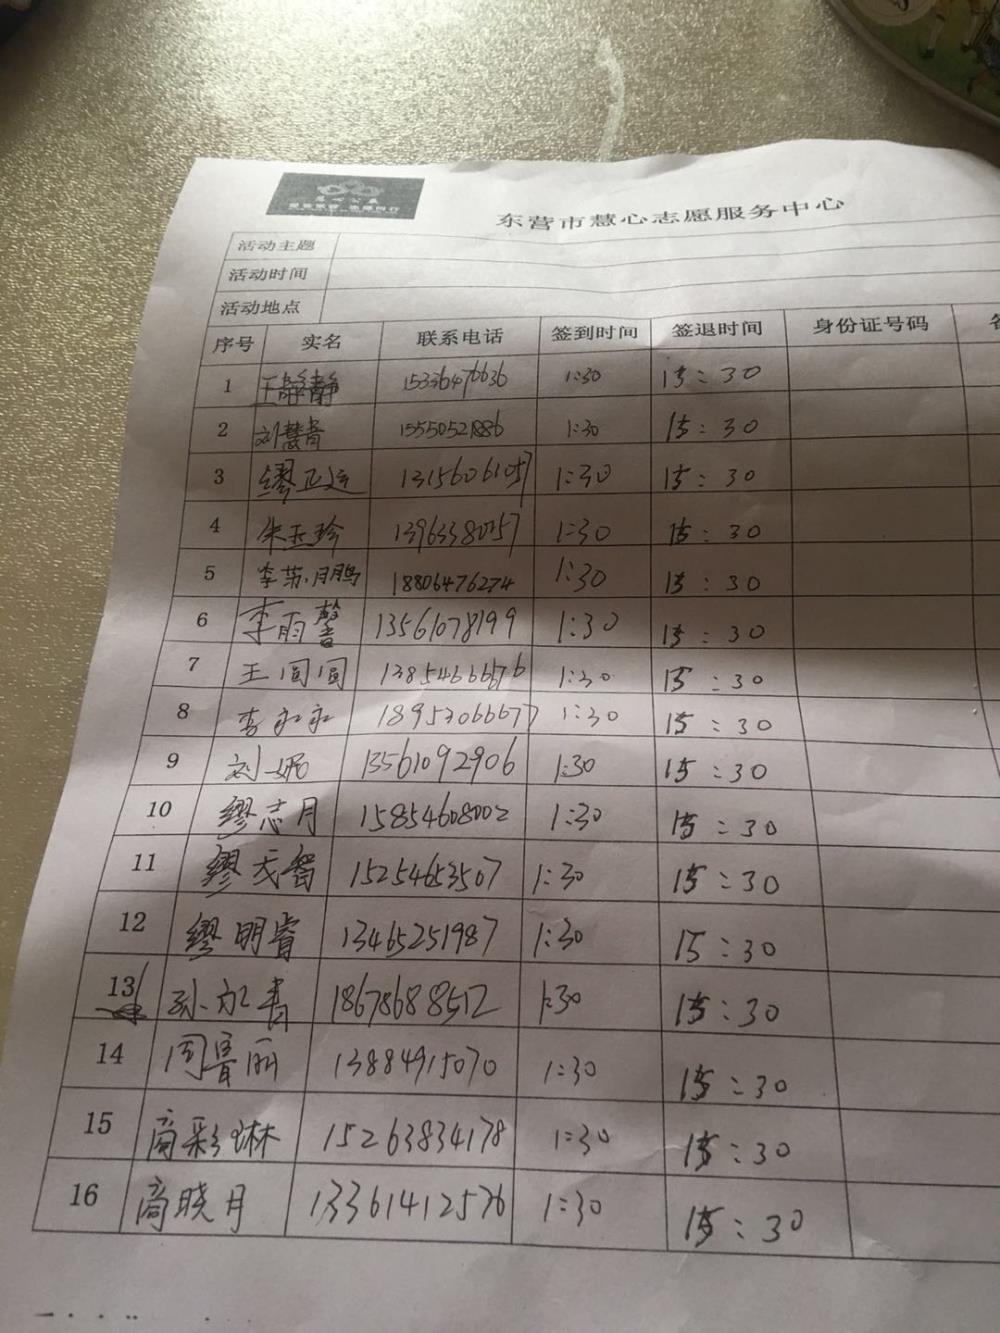 慧心公益
东营市慧心志愿服务中心
活动主题
活动时间
活动地点
序号 实名 联系电话 签到时间 签退时间 身份证号码
1 王静静 15336476636 1:30 15:30
2 刘慧青 15550521886 1:30 15:30
3 缪正运 13156061057 1:30 15:30
4 朱玉珍 1:30 15:30
5 18806476274 1:30 15:30
6 李雨馨 13561078199 1:30 15:30
7 王圆圆 13854666676 1:30 15:30
8 李永永 18953066677 1:30 15:30
9 刘妮 13561092906 1:30 15:30
10 缪志月 15854608002 1:30 15:30
11 缪 15254653507 1:30 15:30
12 缪明睿 13465251987 1:30 15:30
13 孙 18678688512 1:30 15:30
14 周 丽 13884915070 1:30 15:30
15 商彩琳 15263834178 1:30 15:30
16 商晓月 13361412576 1:30 15:30